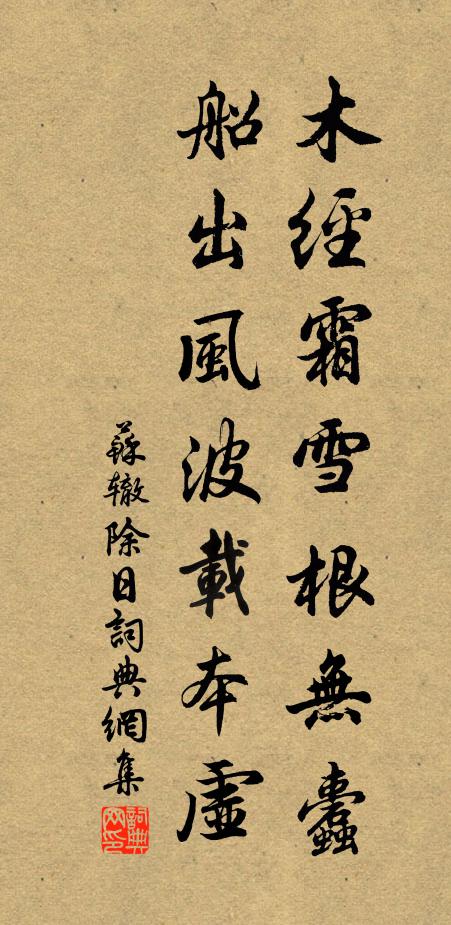 木經霜雪根無蠹
船出風波載本虛
蘇轍除日詞典網集
詞典网印